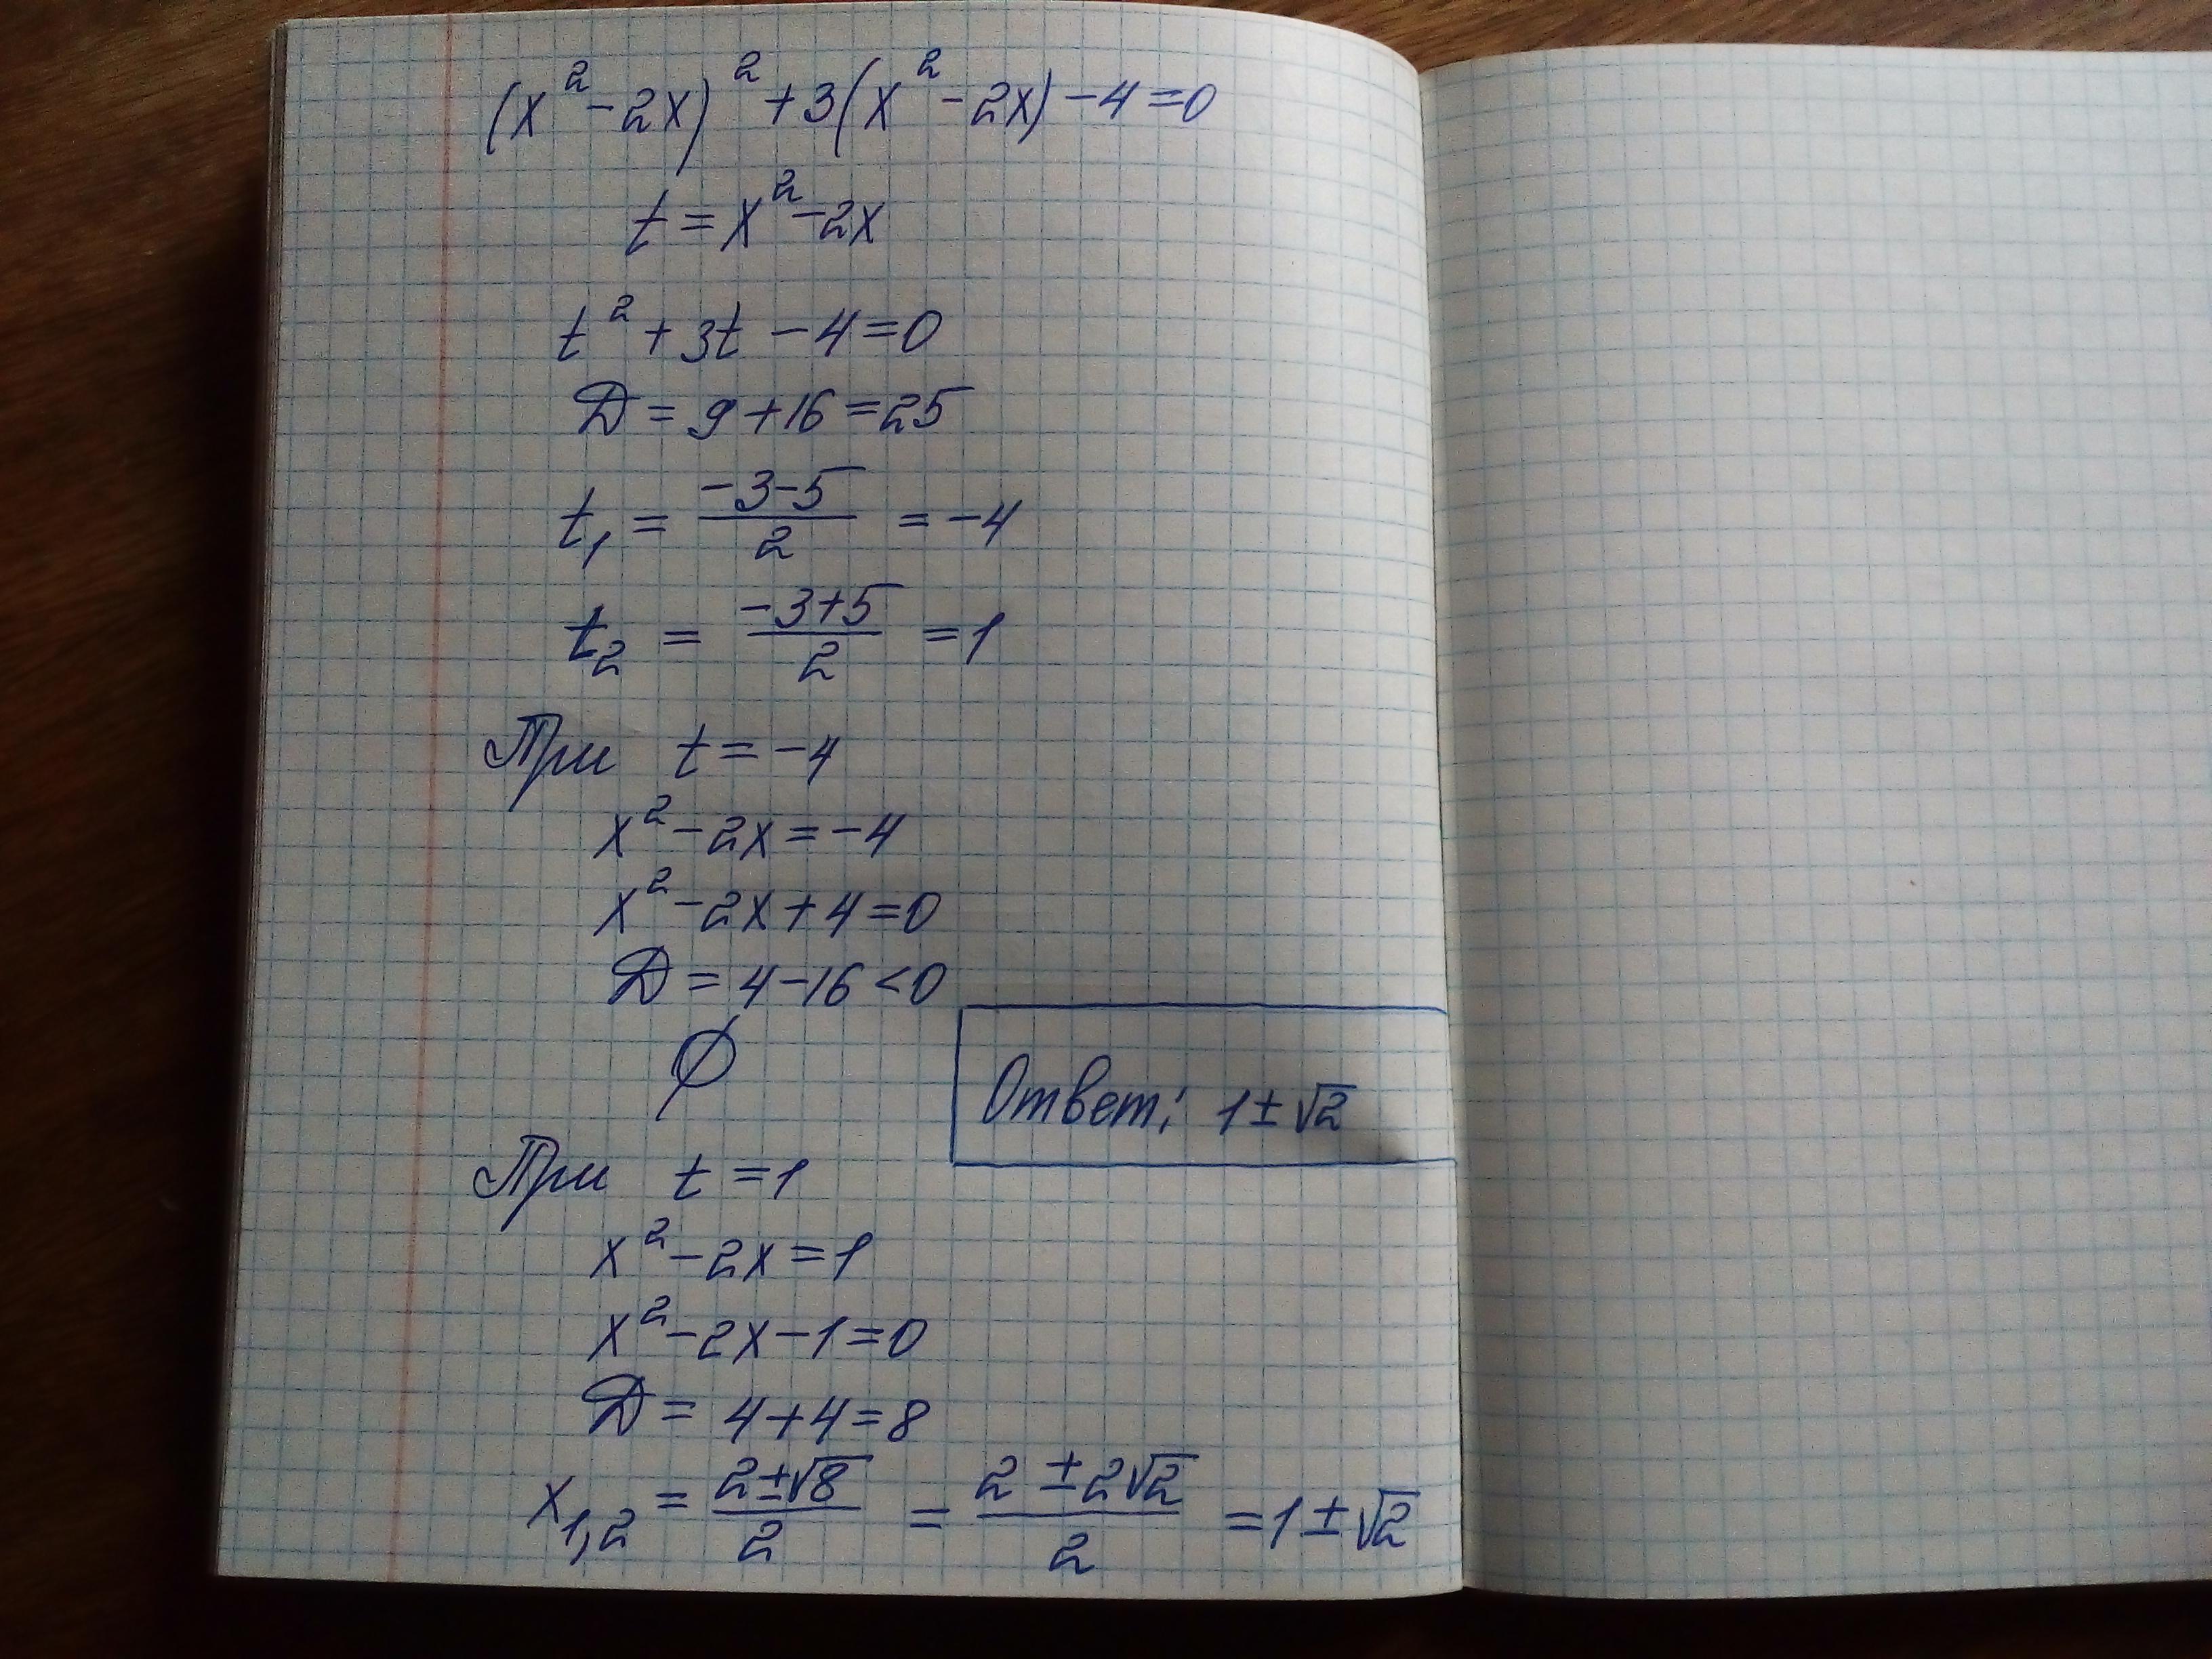 (x²-2x)²+3(x²-2x)-4=0
t=x²-2x
t²+3t-4=0
D=9+16=25
t₁=(-3-5)/2=-4
t₂=(-3+5)/2=1
При t=-4
x²-2x=-4
x²-2x+4=0
D=4-16<0
∅
Ответ: 1±√2
При t=1
x²-2x=1
x²-2x-1=0
D=4+4=8
x₁,₂=(2±√8)/2=(2±2√2)/2=1±√2